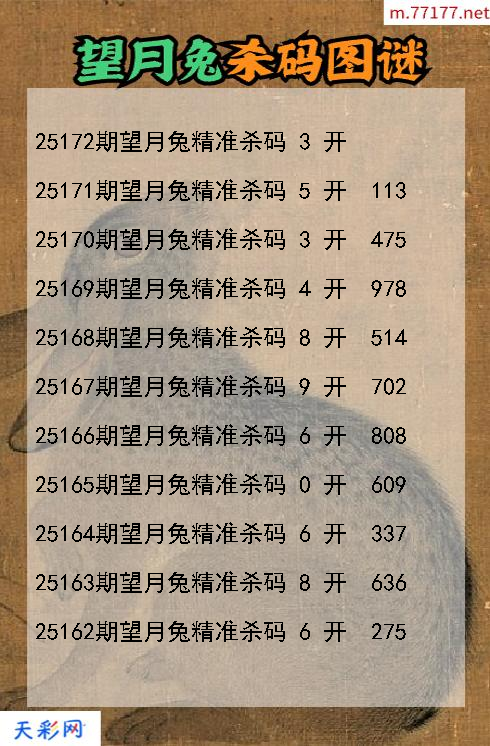 m.77177.net
望月兔杀码图谜
25172期望月兔精准杀码 3 开
25171期望月兔精准杀码 5 开 113
25170期望月兔精准杀码 3 开 475
25169期望月兔精准杀码 4 开 978
25168期望月兔精准杀码 8 开 514
25167期望月兔精准杀码 9 开 702
25166期望月兔精准杀码 6 开 808
25165期望月兔精准杀码 0 开 609
25164期望月兔精准杀码 6 开 337
25163期望月兔精准杀码 8 开 636
25162期望月兔精准杀码 6 开 275
天彩网